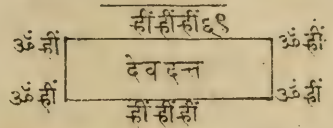 ह्रीं ह्रीं ह्रीं ६९
ॐ ह्रीं ॐ ह्रीं
देव दत्त
ॐ ह्रीं ॐ ह्रीं
ह्रीं ह्रीं ह्रीं